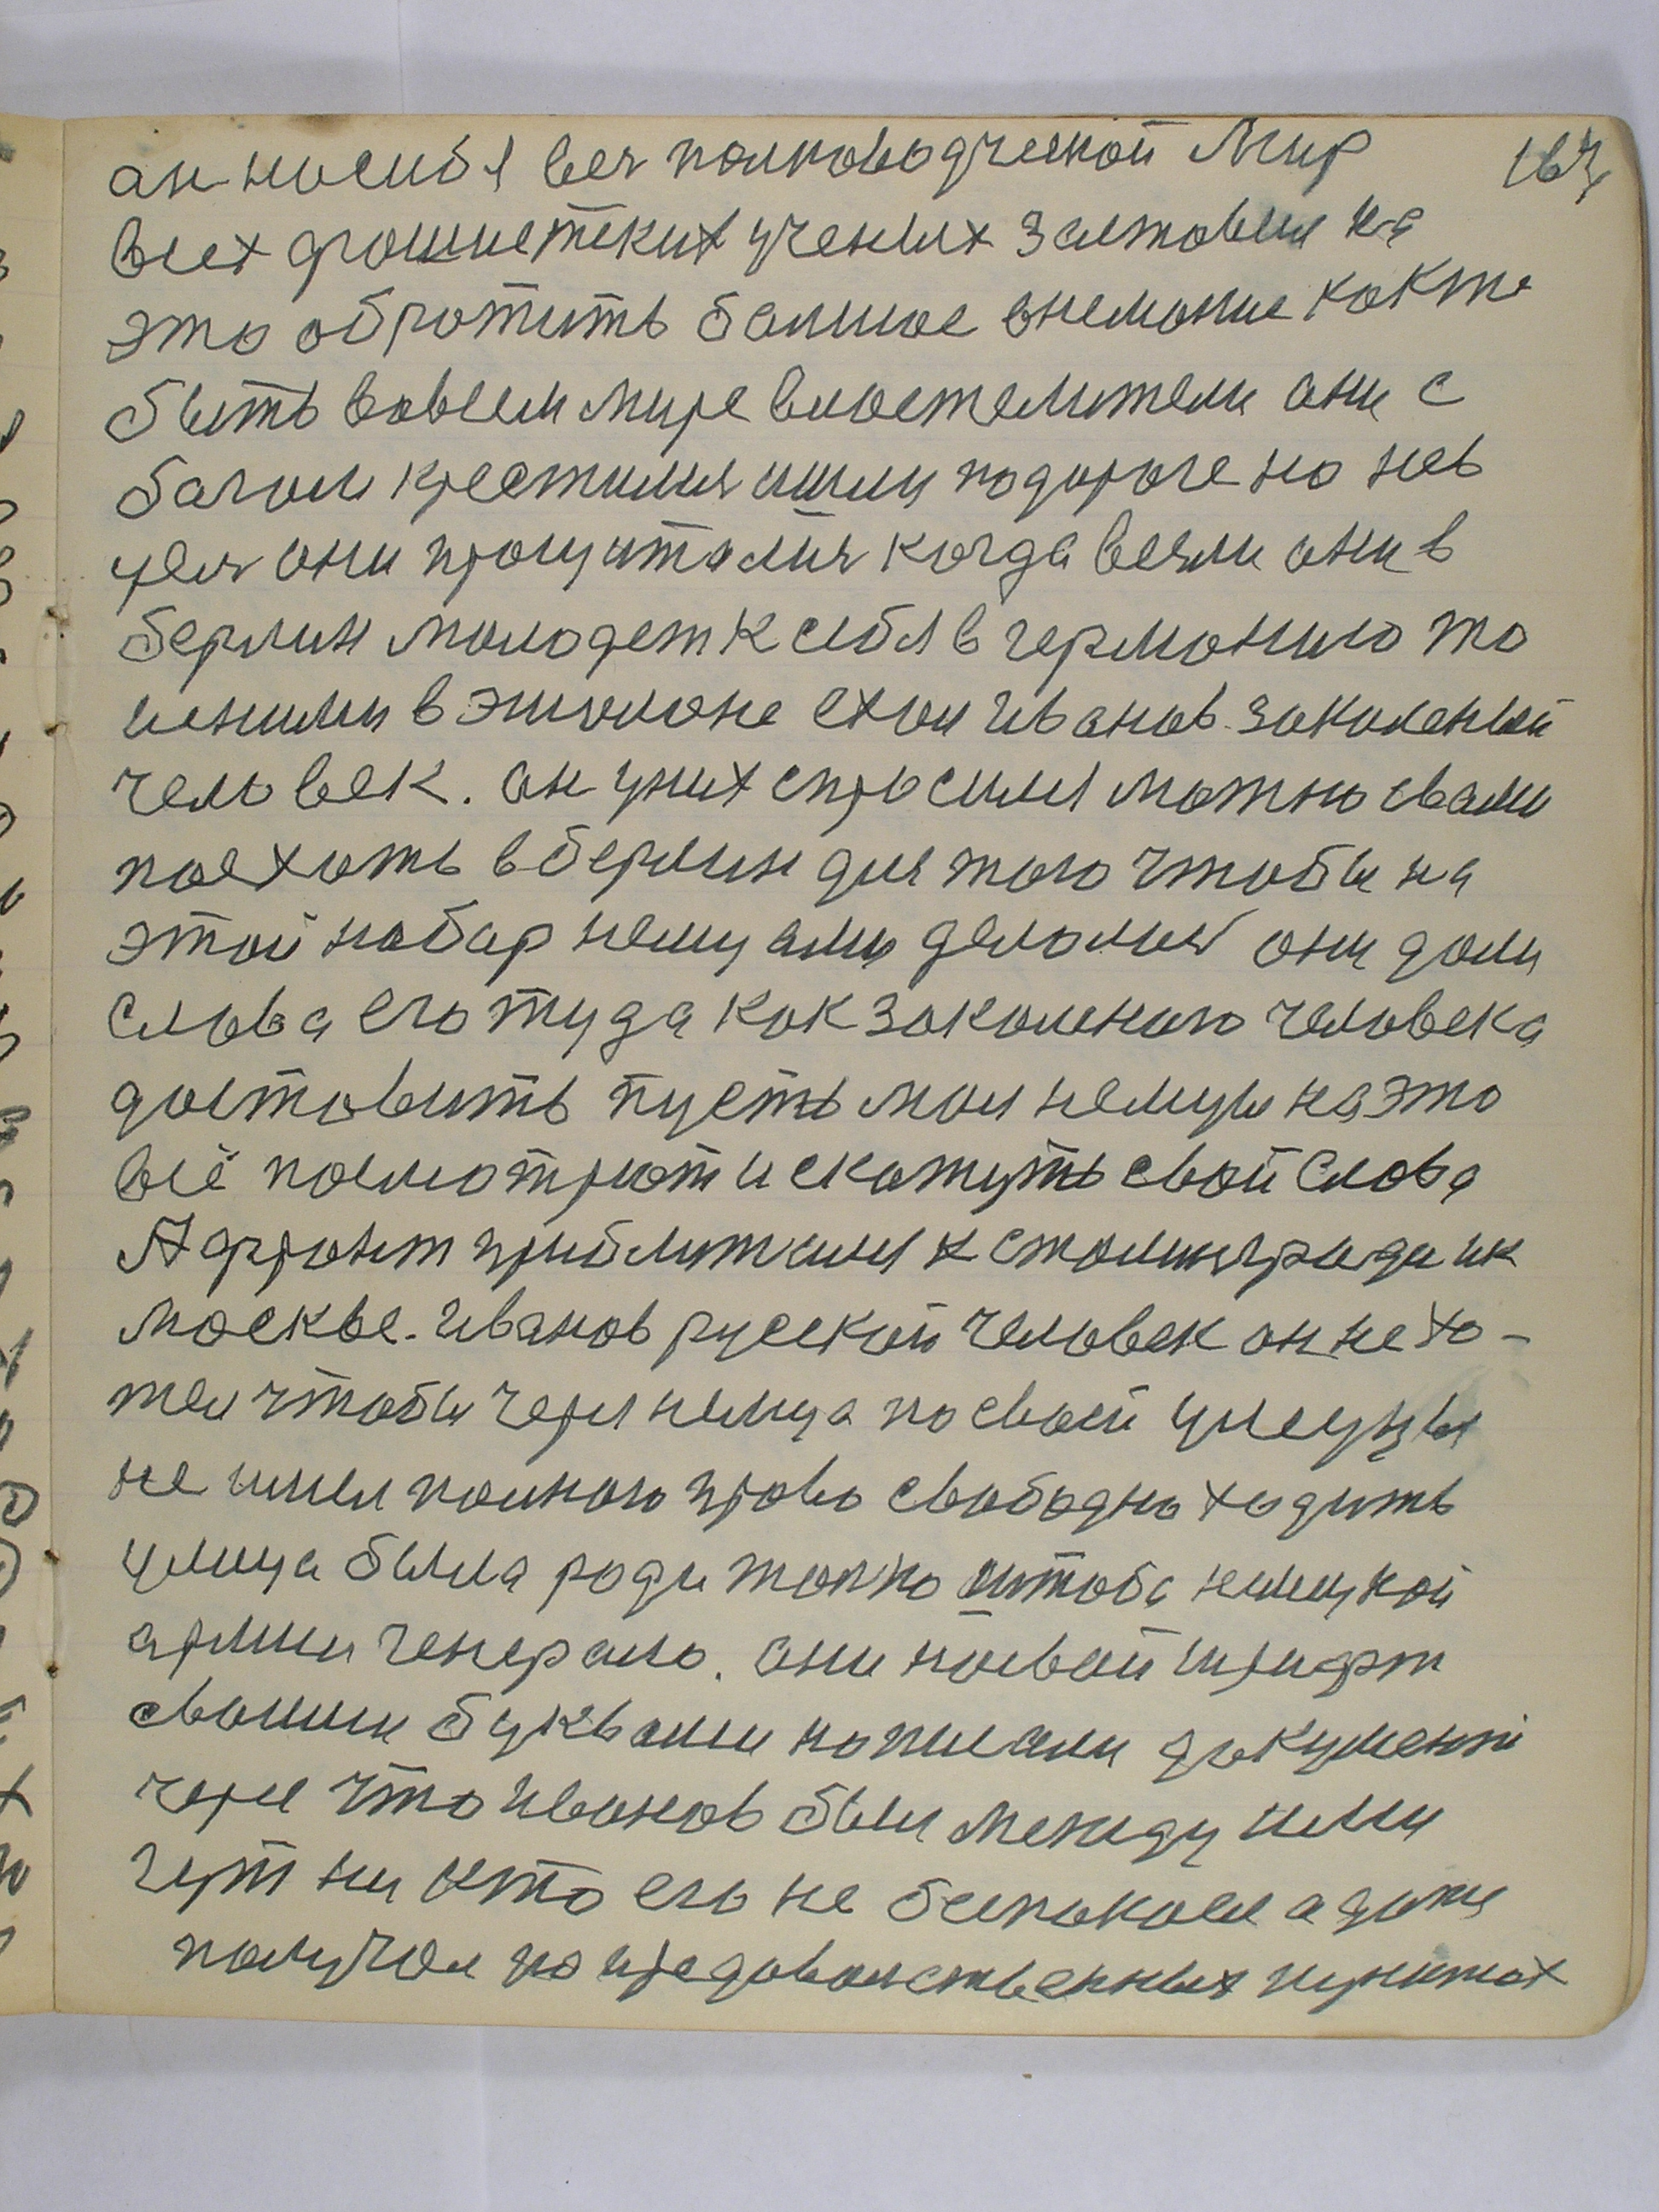 167
ан носился вся полководческой Мир
всех фошистских ученых заставил на
это обротить болшое внемание как то
быть вовсем мире властелители они с
богом крестились ишли подороге но нев
чем они прощитались когда везли они в
берлин молодеж к себя в германию то
исними в эшолоне ехал иванов законный
человек. он уних спросился можно свами
поехать в берлин для того чтобы на
этой набор немцами делолися они дали
слова его туда как законного человека
доставить пусть мол немцы на это
всё посмотрют и скажуть свой слова
А фронт приблизился к сталинграду ик
москве. иванов русской человек он не хо-
тел чтобы через немца по своей улецы
не имел полного право свободно ходить
улица была роди только штаба немецкой
армии генерало. они новой шрифт
своими буквами написали документ
через что иванов был между ними
ни кто его не беспокоел а даже
получал на предовольственных пунктах